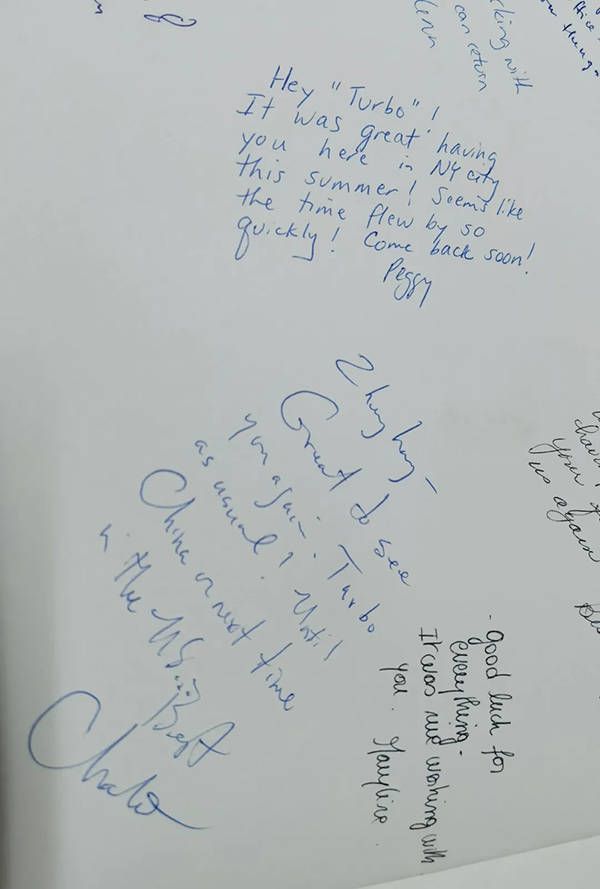 rking with
can return
ffice
Hey "Turbo"!
It was great having
you here in NY city
this summer! Seems like
the time flew by so
quickly! Come back soon!
Peggy
Great to see
you again. Turbo
as usual! Until
China or next time
in the US. Best
you
us again
- good luck for
everything -
It was nice working with
you.